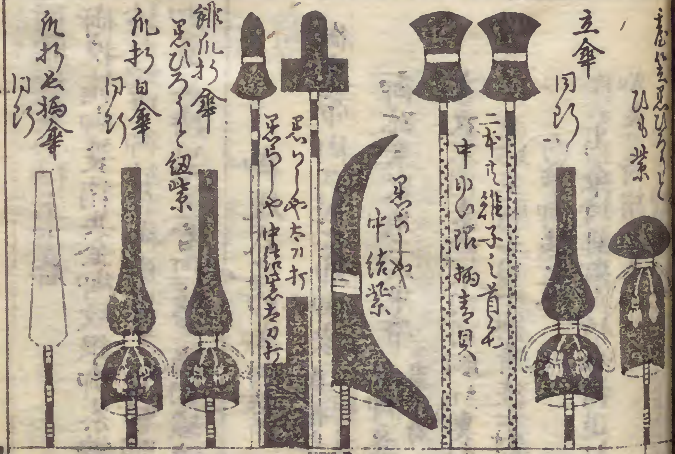 臺笠黒びろうど
ひも紫
立傘
同断
二本共雉子之首毛
中 柄青貝
黒らしや
中結紫
黒らしや太刀打
黒らしや中結黒太刀打
緋爪折傘
黒びろうと 紐紫
爪折白傘
同断
爪折 柄傘
同断